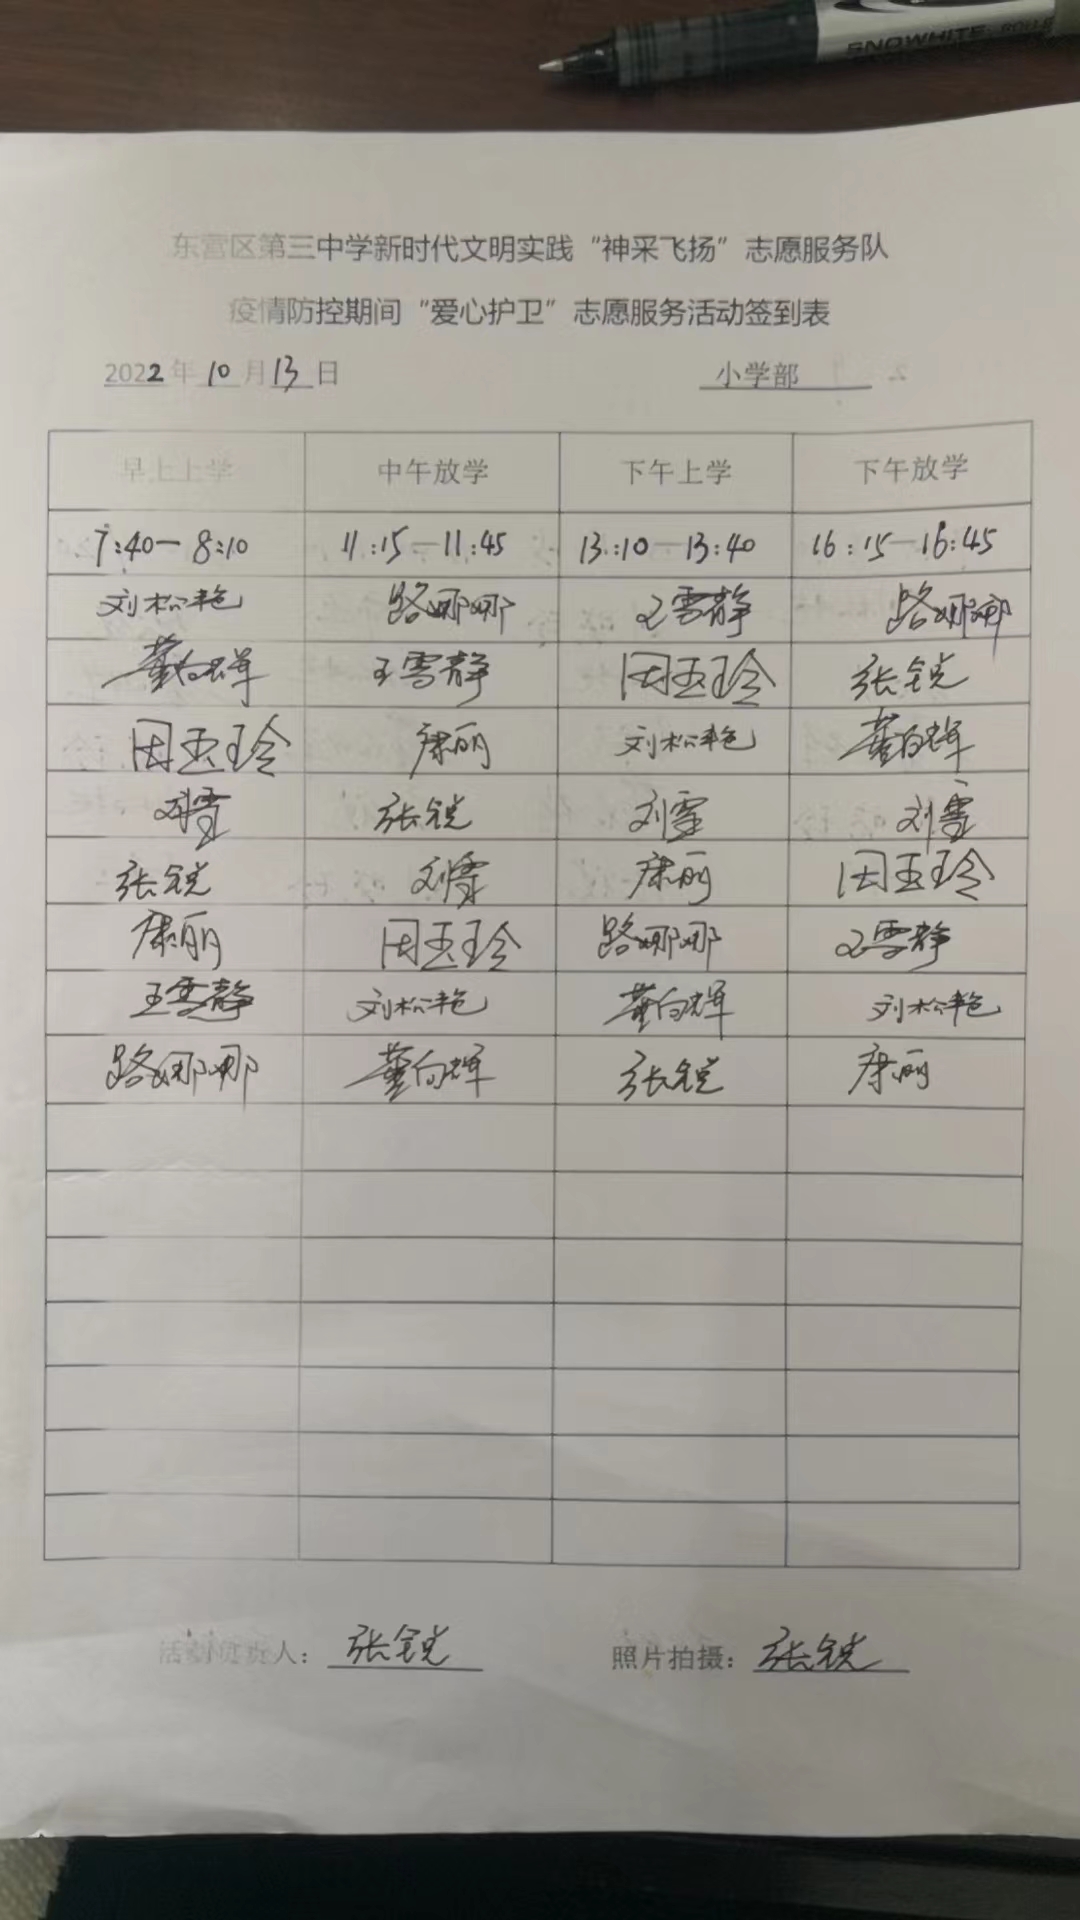 SNOWHITE
东营区第三中学新时代文明实践“神采飞扬”志愿服务队
疫情防控期间“爱心护卫”志愿服务活动签到表
2022年 10 月 13 日 小学部
早上上学 中午放学 下午上学 下午放学
7:40—8:10 11:15—11:45 13:10—13:40 16:15—16:45
刘松艳 路娜娜 王雪静 路娜娜
董向辉 王雪静 周玉玲 张锐
周玉玲 康丽 刘松艳 董向辉
刘雪 张锐 刘雪 刘雪
张锐 刘雪 康丽 周玉玲
康丽 周玉玲 路娜娜 王雪静
王雪静 刘松艳 董向辉 刘松艳
路娜娜 董向辉 张锐 康丽
活动负责人：张锐 照片拍摄：张锐